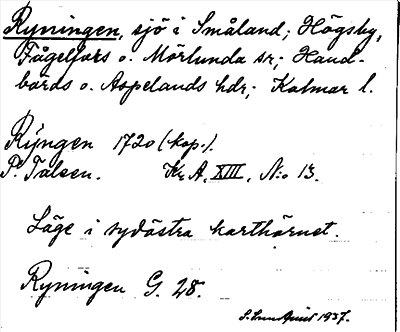 Ryningen, sjö i Småland; Högsby,
Fågelfors o. Mörlunda sr; Hand-
börds o. Aspelands hdr; Kalmar l.
Rÿngen 1720 (kop.).
P. Talsen. Kr. A. XIII, N:o 13.
Läge i sydöstra karthörnet.
Ryningen G. 28.
1937.